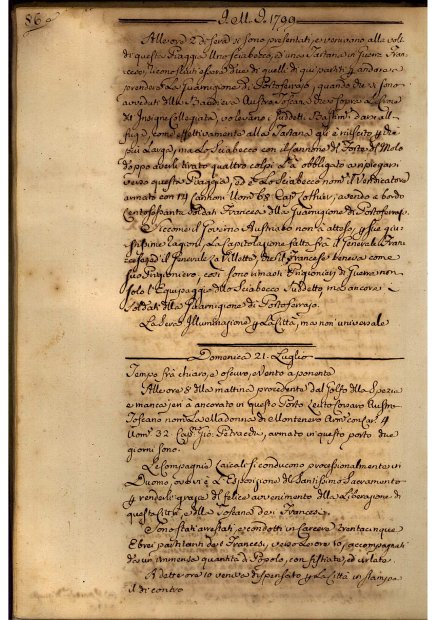 86
A. M. D. 1799
Alle ore 2 di sera si sono presentati, e venivano alla volta
di questa Piaggia Uno Sciabecco, ed una Tartana in Guerra Fran-
cese,
prendere la Guarnigione di Portoferraio, quando che si sono
avveduti della Bandiera Austra Toscana
volevano i suddetti Bastim. darsi alla
fuga, come effettivamente alla Tartana gli è riuscito
ma lo Sciabecco con il Cannone del Forte del Molo
doppo averli tirato quattro colpi si è obbligato a ripiegar
verso questa Piaggia, ed è lo Sciabecco nom. il Vendicatore
armato con Cannoni Uom. 68 Cap. avendo a bordo
Centosessanta Soldati Francesi della Guarnigione di Portoferraio.
Siccome il Governo Austriaco non à atteso, p. sue giu-
stissime ragioni, la Capitolazione fatta frà il Generale Fran-
cese ed il Generale la Villette, che il Francese teneva come
suo Prigioniero, così sono rimasti Prigionieri di Guerra non
solo l'Equipaggio dello Sciabecco suddetto ma ancora i
Soldati della Guarnigione di Portoferraio.
La Sera Illuminazione p. la Città, ma non universale
Domenica 21. Luglio
Tempo frà chiaro, e oscuro, e vento a ponente
Alle ore 8 della mattina procedente dal Golfo della Spezia
e manca jeri à ancorato in questo Porto Leuto Corsaro Austro
Toscano nom. la Madonna di Montenero Arm. con Car. 4
Uom. 32 Cap. Gio: Petracchi, armato in questo porto due
giorni sono.
Le Compagnie Laicali si conducono processionalmente in
Duomo, ove vi è l'Esposizione del Santissimo Sacramento
p. renderle grazie del felice avvenimento della Liberazione di
questa Città, e della Toscana dai Francesi.
Sono stati arrestati, e condotti in Carcere Trentacinque
Ebrei partitanti dei Francesi, verso le ore 10, accompagnati
da un immensa quantità di Popolo, con fistiate, ed urlate.
A dette ore 10 veniva dispensato p. la Città in stampa
il di contro